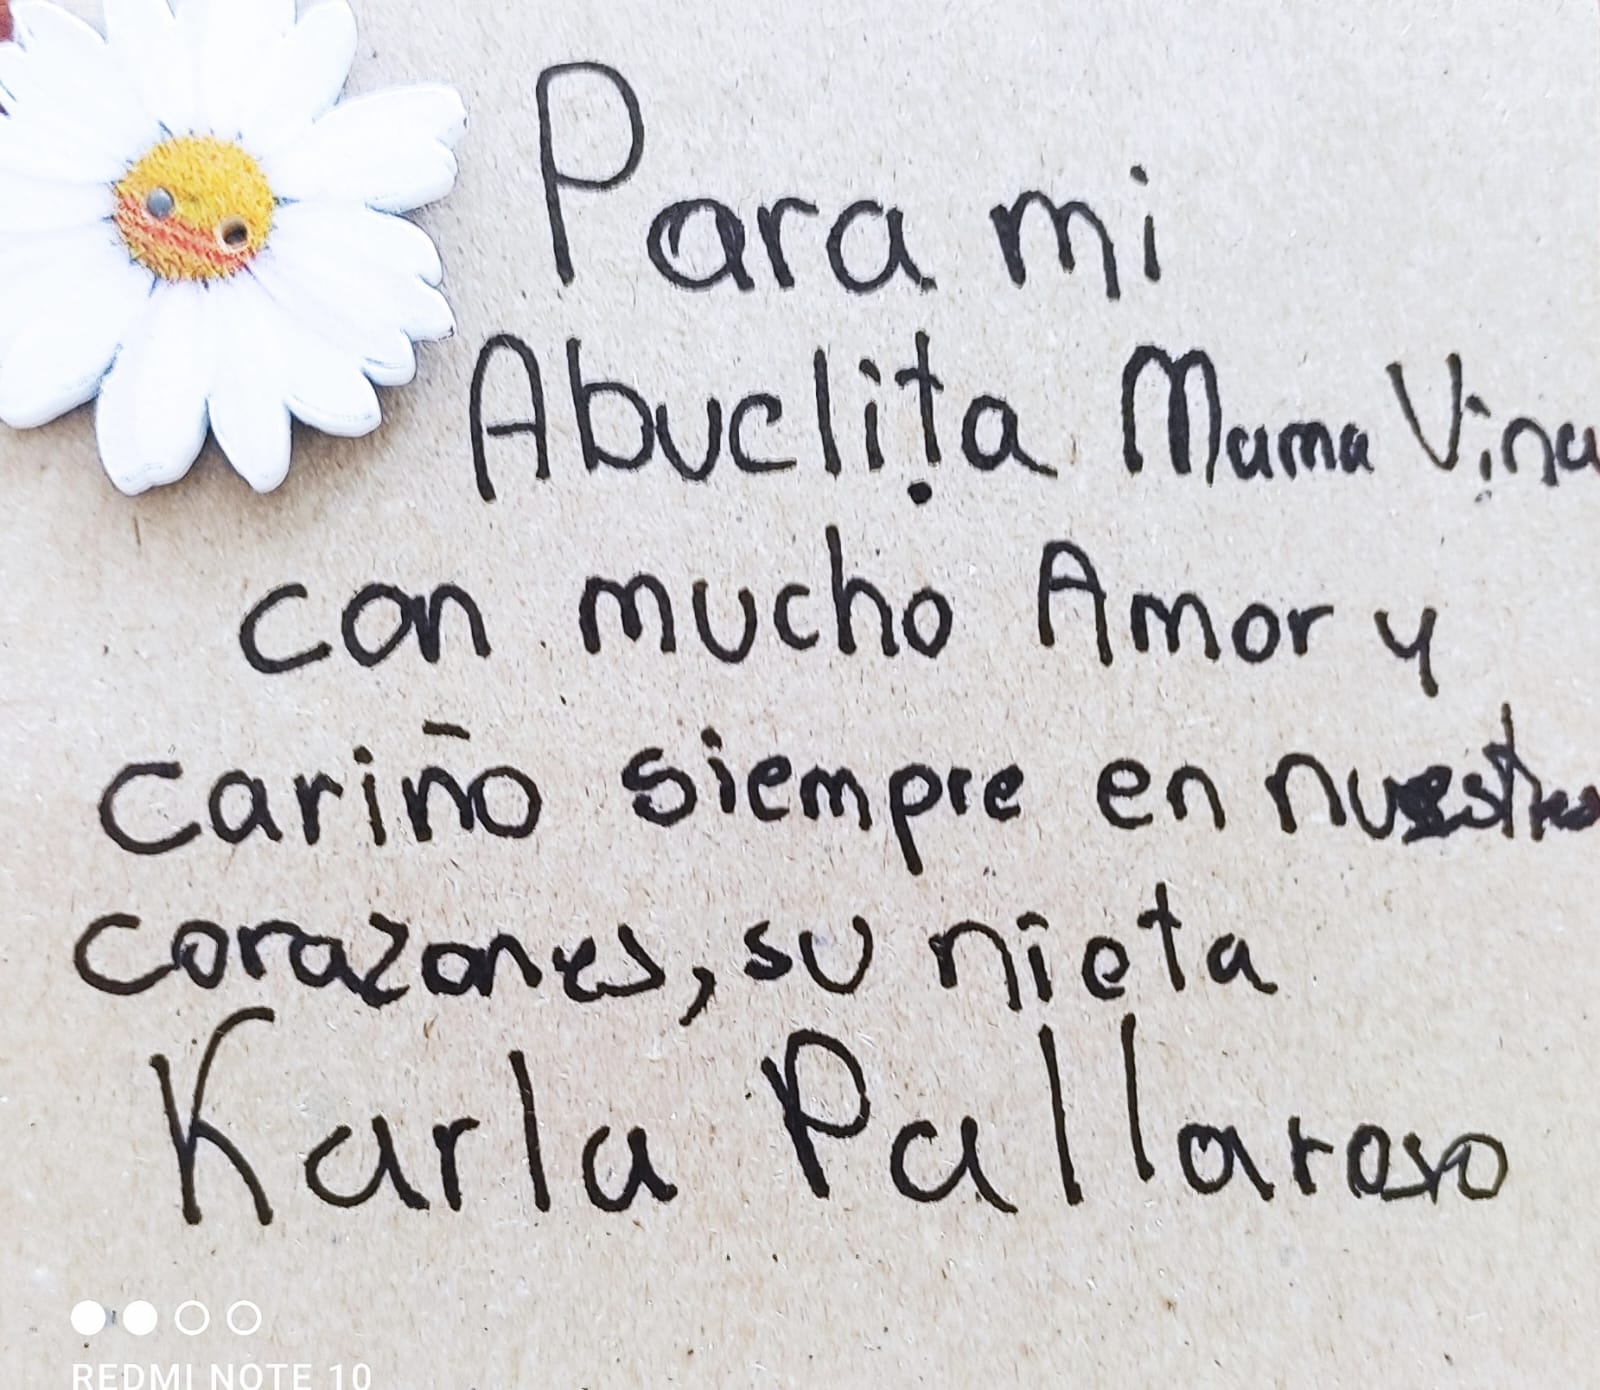 Para mi
Abuelita Mama Vina
con mucho Amor y
cariño siempre en nuestros
corazones, su nieta
Karla Pallaroso
REDMI NOTE 10